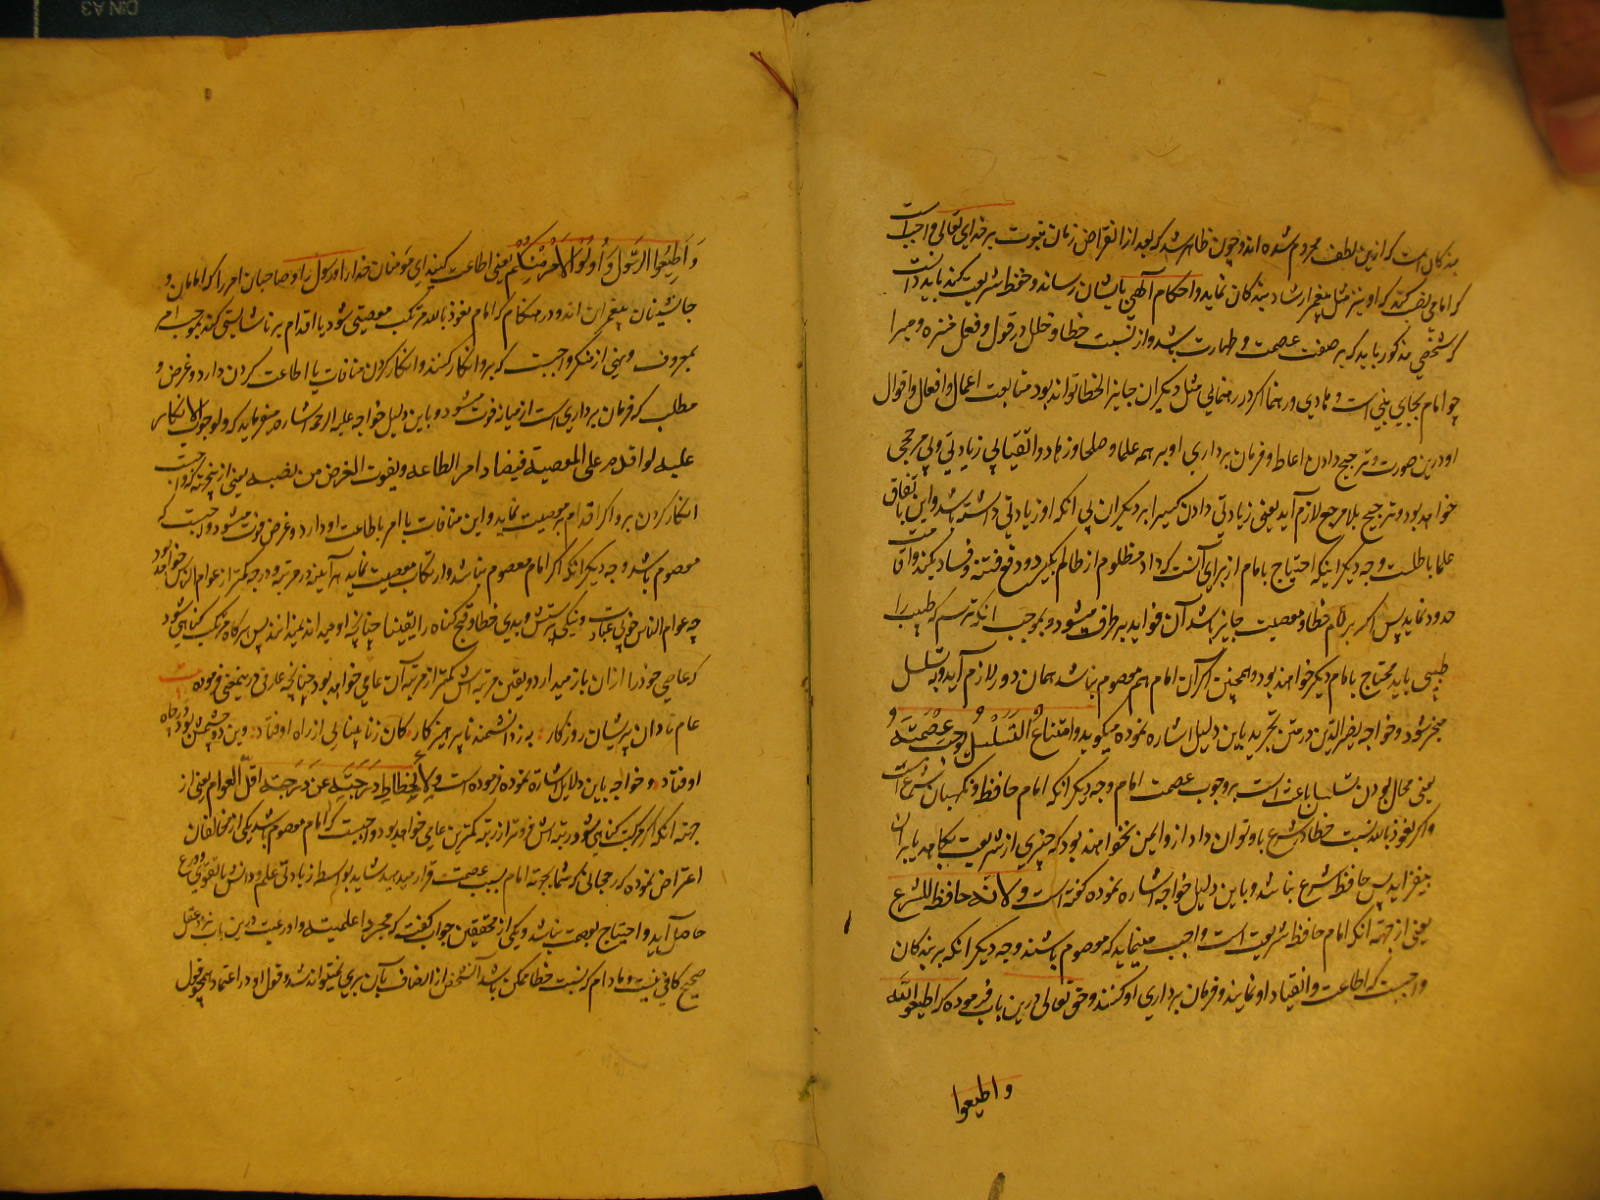 بندکان است که ازین لطف محروم شده اند و چون ظاهر شد که بعد از انقراض زمان نبوت بر خدای تعالی واجب است
که امامی نصب کند که او نیز مثل پیغمبر ارشاد بندکان نماید و احکام آلهی بایشان رساند و حفظ شریعت کند باید دانست
که شخصی مذکور باید که بر صفت عصمت و طهارت باشد و از نسبت خطا و خلل در قول و فعل منزه و مبرا
چو امام بجای نبی است و هادی و رهنما اکر در رهنمایی مثل دیکران جایز الخطا تواند بود متابعت اعمال و افعال و اقوال
او درین صورت و ترجیح دادن اطاعت و فرمان برداری او بر همه علما و صلحا و زهاد و اتقیا بی زیادتی و بی مرجحی
خواهد بود و ترجیح بلا مرجح لازم آید یعنی زیادتی دادن کسیرا بر دیکران بی انکه او زیادتی داشته باشد و این باتفاق
علما باطلست وجه دیکر اینکه احتیاج بامام از برای آنست که داد مظلوم از ظالم بکیرد و دفع فتنه و فساد بکند و اقامت
حدود نماید پس اکر بر امام خطا و معصیت جایز باشد آن فواید بر طرف میشود و بموجب انکه ترسم که طبیب را
طبیبی باید محتاج بامام دیکر خواهند بود و همچنین اکر آن امام هم معصوم نباشد همان دور لازم آید و بتسلسل
منجر شود و خواجه نصیر الدین در متن تجرید باین دلیل اشاره نموده میکوید و امتناع التسلسل یوجب عصمته
یعنی محال بودن تسلسل باعث است بر وجوب عصمت امام وجه دیکر انکه امام حافظ و نکهبان شرع است
و اکر نعوذ بالله نسبت خطا در شرع باو توان داد ازو ایمن نخواهند بود که چیزی از شریعت بکاهد یا بران
بیفزاید پس حافظ شرع نباشد و باین دلیل خواجه اشاره نموده کفته است و لانه حافظ للشرع
یعنی از جهة انکه امام حافظ شریعت است واجب مینماید که معصوم باشند وجه دیکر انکه بر بندکان
واجبست که اطاعت و انقیاد او نمایند و فرمان برداری او کنند و حق تعالی درین باب فرموده که اطیعوا الله
و اطیعوا
و اطیعوا الرسول و اولوا الامر منکم یعنی اطاعت کنید ای مومنان خدا را و رسول را و صاحبان امر را که امامان و
جانشینان پیغمبران اند و در هنکام که امام نعوذ بالله مرتکب معصیتی شود یا اقدام بر ناشایستی کند بموجب امر
بمعروف و نهی از منکر واجبست که برو انکار کنند و انکار کردن منافات با اطاعت کردن دارد و غرض و
مطلب که فرمان برداری است از میانه فوت میشود و باین دلیل خواجه علیه الرحمه اشاره میفرماید که و لوجوب الانکار
علیه لو اقدم علی المعصیة فیضاد امر الطاعه و یفوت الغرض من نصبه یعنی از نجهته که واجبست
انکار کردن برو اکر اقدام بر معصیت نماید و این منافات با امر باطاعت او دارد و غرض فوت میشود واجبست که
معصوم باشد وجه دیکر انکه اکر امام معصوم نباشد و ارتکاب معصیت نماید هر آینه در مرتبه و درجه کمتر از عوام الناس خواهد بود
چه عوام الناس خوبی عبادت و نیکی پرستش و بدی خطا و قبح کناه را یقینا چنانچه او میداند نمیدانند پس هرکاه مرتکب کناهی شود
که عاصی خود را ازان باز میدارد و یقین مرتبه اش کمتر از مرتبه آن عامی خواهد بود چنانچه عارفی درینمعنی فرموده بیت
عام نادان پریشان روزکار به ز دانشمند ناپرهیزکار کان زنابینایی از راه اوفتاد وین دو چشمش بود و در چاه
اوفتاد و خواجه باین دلایل اشاره نموده فرموده است و لانحطاط درجته عن درجة اقل العوام یعنی از
جهته انکه اکر مرتکب کناهی شود رتبه اش فروتر از رتبه کمترین عامی خواهد بود واجبست که امام معصوم باشد یکی از مخالفان
اعتراض نموده که رجحانی که شما بجهة امام بسبب عصمت قرار میدهید شاید بواسطه زیادتی علم و دانش یا تقوی و ورع
حاصل آید و احتیاج بعصمت نباشد و یکی از محققین جواب کفت که مجرد اعلمیت و اورعیت درین باب نزد عقل
صحیح کافی نیست و مادام که نسبت خطا ممکن باشد آن شخص از اتصاف بآن بری نمیتواند شد و قول او در اعتماد همچو قول